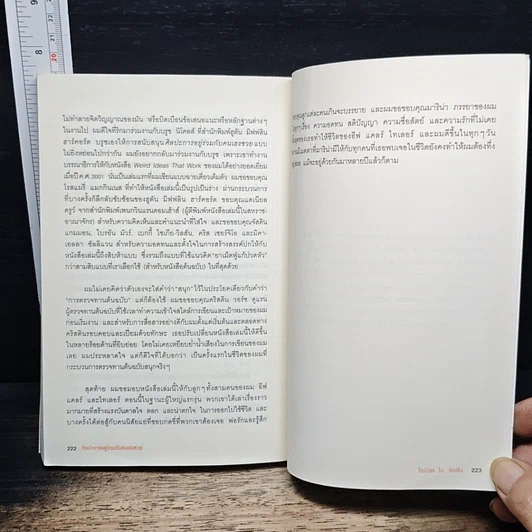 ไม่ทำลายจิตวิญญาณของมัน หรือบิดเบือนข้อเสนอแนะหรือหลักฐานต่างๆ
ในงานไป ผมดีใจที่รักมาร่วมงานกับบรูซ นิโคลส์ ที่สำนักพิมพ์ฮูตัน มิฟฟลิน
ฮาร์คอร์ต บรูซเองให้การสนับสนุน ศิลปะการอยู่ร่วมกับคนเฮงซวย แบบ
ไม่ยิ่งหย่อนไปกว่ากัน ผมยังอยากกลับมาร่วมงานกับบรูซ เพราะเขาทำงาน
บรรณาธิการให้กับหนังสือ Weird Ideas That Work ของผมได้อย่างยอดเยี่ยม
เมื่อปี ค.ศ. 2001 นั่นเป็นเล่มแรกที่ผมเขียนแบบขายเดี่ยวเต็มตัว ผมขอบคุณ
โรสแมรี่ แมกกินเนส ที่ทำให้หนังสือเล่มนี้เป็นรูปเป็นร่าง ผ่านกระบวนการ
ที่บางครั้งก็ลึกลับซับซ้อนของฮูตัน มิฟฟลิน ฮาร์คอร์ต ขอบคุณแดเนียล
ครูว์ จากสำนักพิมพ์เพนกวินแรนดอมเฮ้าส์ (ผู้ตีพิมพ์หนังสือเล่มนี้ในสหราช-
อาณาจักร) สำหรับความคิดเห็นและคำแนะนำที่ใส่ใจ และขอบคุณจัสติน
แกมมอน, ไบรอัน มัวร์, เบกกี้ ไซเกีย-วิลสัน, คริส เซอร์จิโอ และมิคา-
เอลลา ซัลลิแวน สำหรับความอดทนและตั้งใจในการสร้างสรรค์ปกให้กับ
หนังสือเล่มนี้ถึงสิบห้าแบบ ซึ่งรวมถึงแบบที่ใช้แนวคิด "ยาเม็ดฟู่แก้ปวดหัว"
กว่าสามสิบแบบที่เราเลือกใช้ (สำหรับหนังสือต้นฉบับ) ในที่สุดด้วย
ผมไม่เคยคิดว่าตัวเองจะใส่คำว่า "สนุก" ไว้ในประโยคเดียวกับคำว่า
"การตรวจทานต้นฉบับ" แต่ก็ต้องใช้ ผมขอขอบคุณคริสติน วอร์ซ ดูแรน
ผู้ตรวจทานต้นฉบับที่ใช้เวลาทำความเข้าใจสไตล์การเขียนและเป้าหมายของผม
ก่อนเริ่มงาน และสำหรับการสื่อสารอย่างดีกับผมตั้งแต่เริ่มต้นและตลอดทาง
คริสตินรอบคอบและเปี่ยมด้วยทักษะ เธอปรับเปลี่ยนหนังสือเล่มนี้ให้ดีขึ้น
ในหลายร้อยด้านที่ยิบย่อย โดยไม่เคยเหยียบย่ำน้ำเสียงในการเขียนของผม
เลย ผมประหลาดใจ แต่ก็ดีใจที่ได้บอกว่า เป็นครั้งแรกในชีวิตของผมที่
กระบวนการตรวจทานต้นฉบับสนุกจริงๆ
สุดท้าย ผมขอมอบหนังสือเล่มนี้ให้กับลูกๆ ทั้งสามคนของผม อีฟ
แคลร์ และไทเลอร์ ตอนนี้ในฐานะผู้ใหญ่แรกรุ่น พวกเขาได้เล่าเรื่องราว
มากมายที่สร้างแรงบันดาลใจ ตลก และน่าตกใจ ในการออกไปใช้ชีวิต และ
บางครั้งได้ต่อสู้กับคนนิสัยแย่ที่ชอบกดขี่ที่พวกเขาต้องเจอ พ่อรักและรู้สึก
222 ศิลปะการอยู่ร่วมกับคนเฮงซวย
ขอบคุณลูกแต่ละคนเกินจะบรรยาย และผมขอขอบคุณมารีน่า ภรรยาของผม
ในเรื่อง ความอดทน สติปัญญา ความซื่อสัตย์ และความรักที่ไม่เคย
ของเธอทำให้ชีวิตของอีฟ แคลร์ ไทเลอร์ และผมดีขึ้นในทุกๆ วัน
เมตตาที่มารีน่ามีให้กับทุกคนที่เธอพบเจอในชีวิตยังคงทำให้ผมต้องทึ่ง
แม้จะอยู่ด้วยกันมาหลายปีแล้วก็ตาม
โรเบิร์ต ไอ. ซัตตัน 223